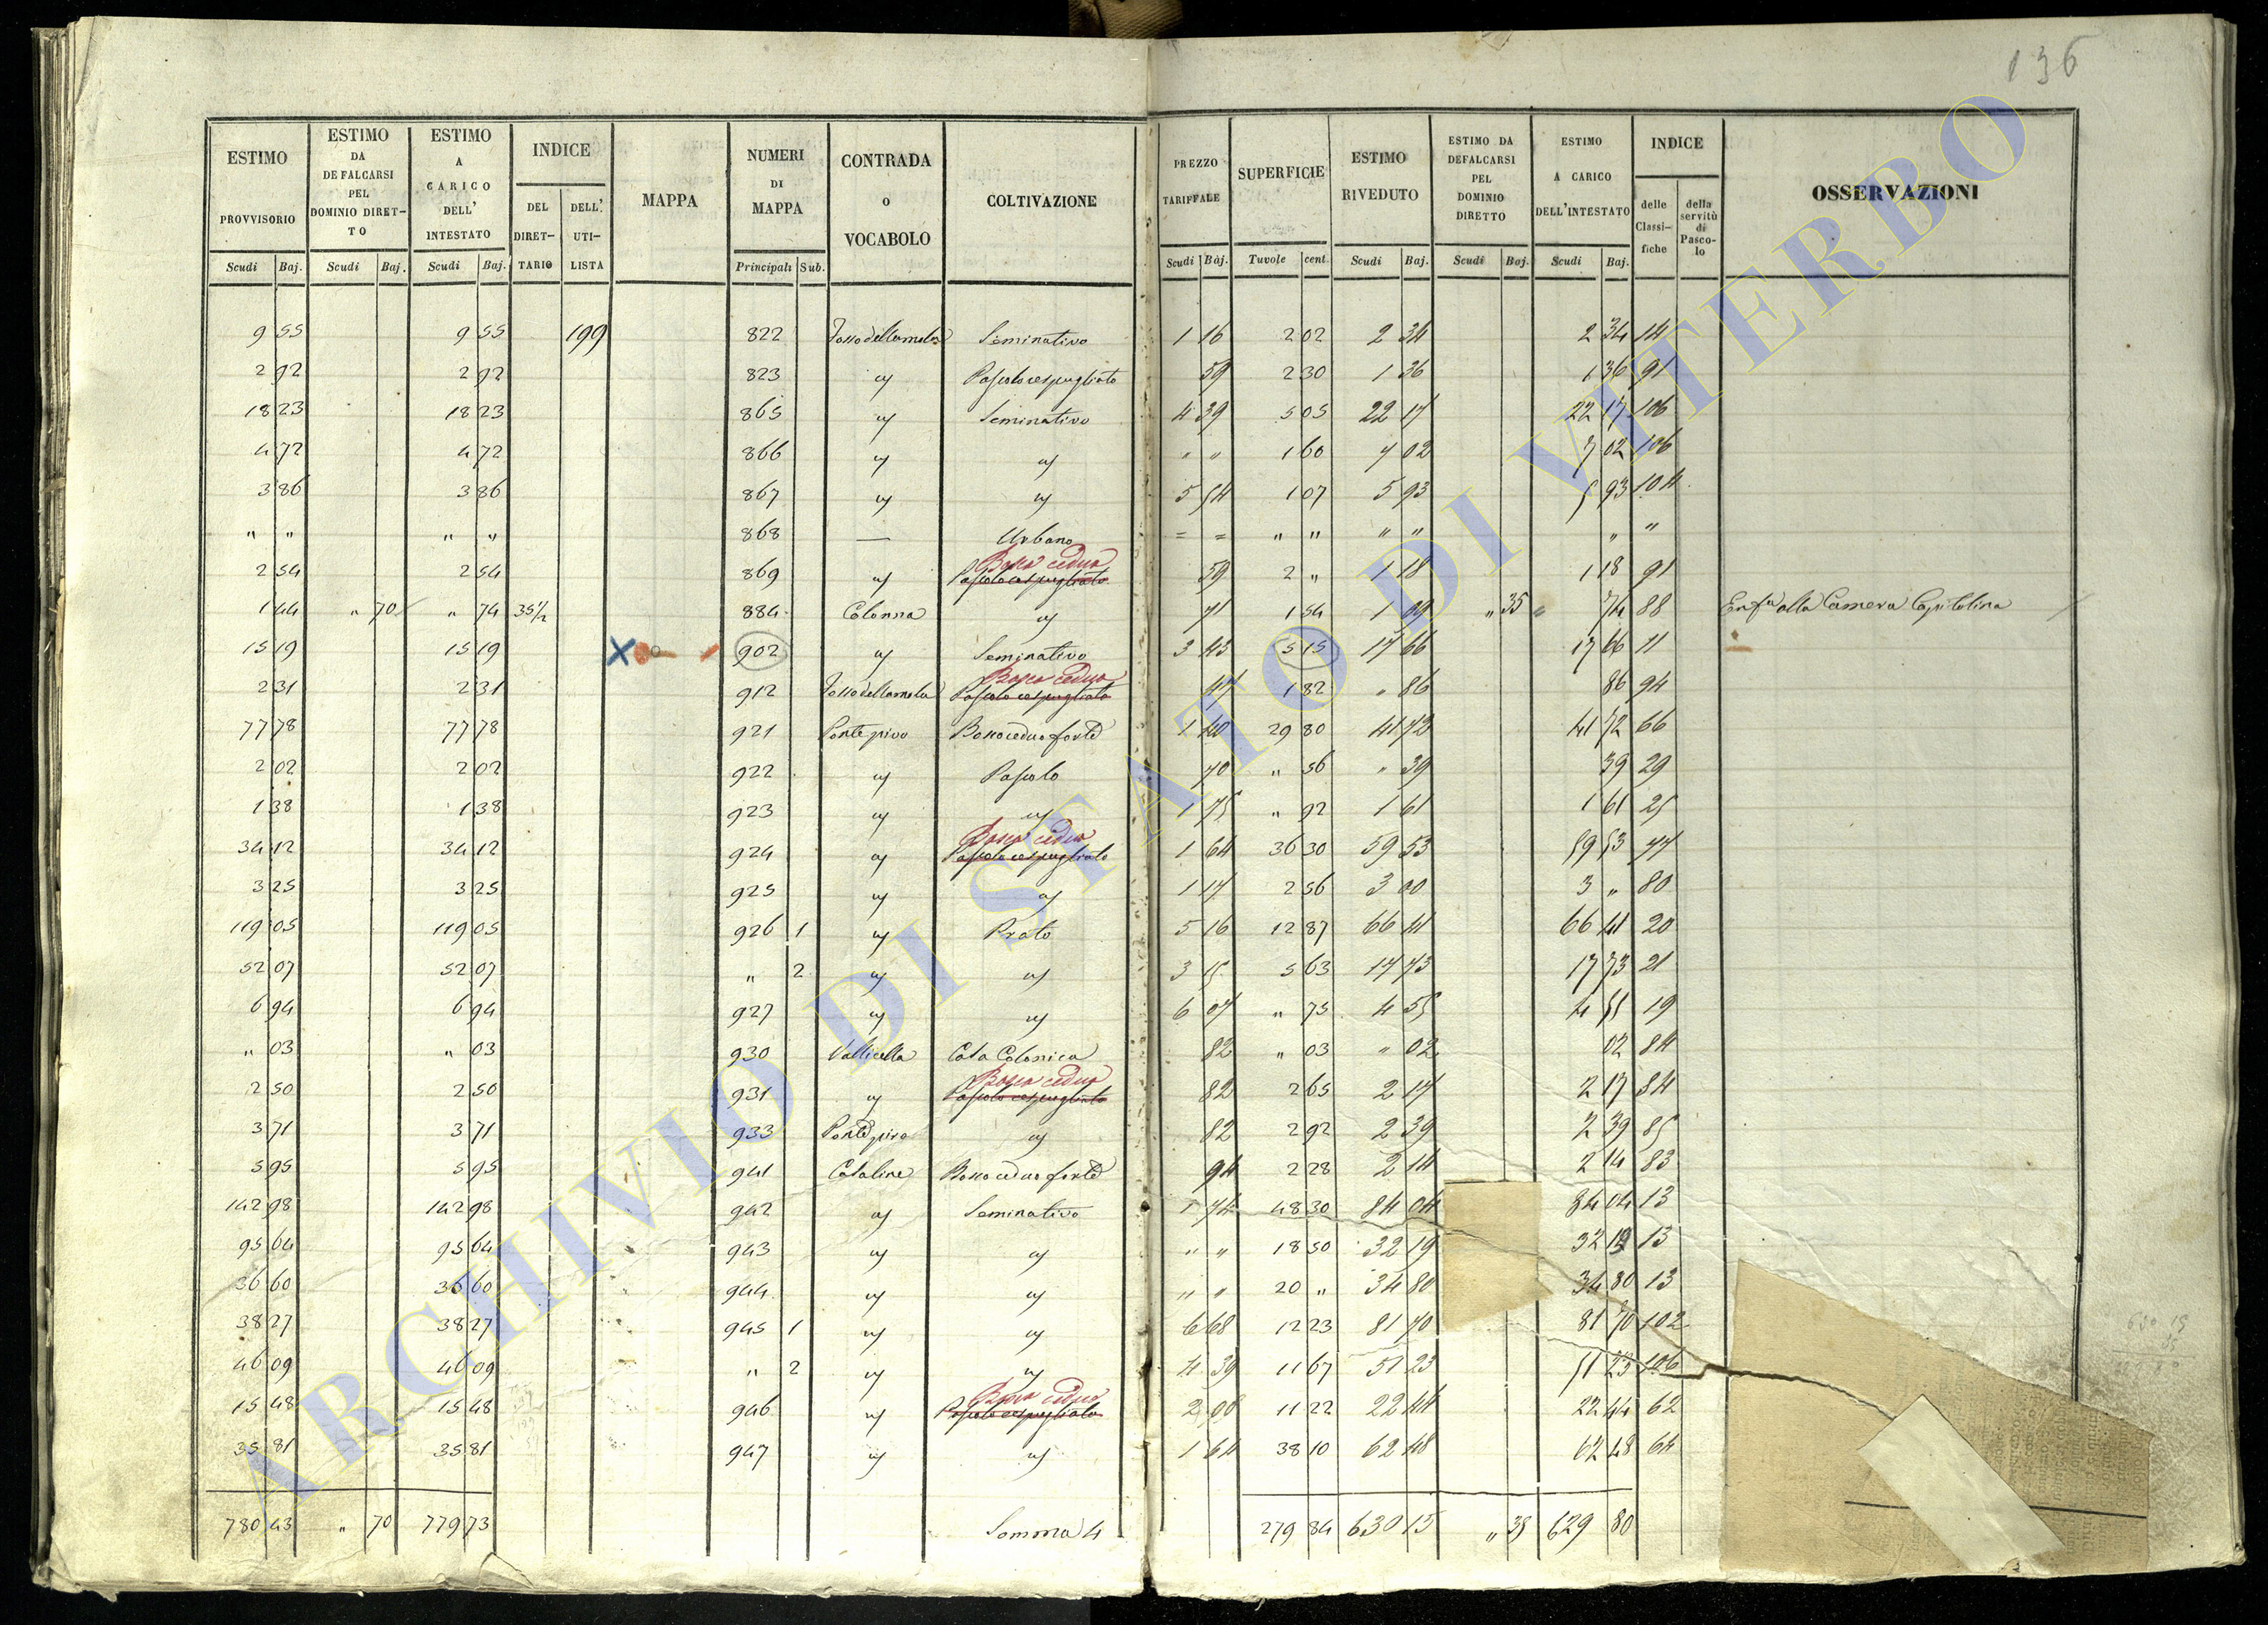 136
ESTIMO PROVVISORIO | ESTIMO DA DEFALCARSI PEL DOMINIO DIRETTO | ESTIMO A CARICO DELL' INTESTATO | INDICE | MAPPA | NUMERI DI MAPPA | CONTRADA o VOCABOLO | COLTIVAZIONE | PREZZO TARIFFALE | SUPERFICIE | ESTIMO RIVEDUTO | ESTIMO DA DEFALCARSI PEL DOMINIO DIRETTO | ESTIMO A CARICO DELL'INTESTATO | INDICE | OSSERVAZIONI
DEL DIRETTARIO | DELL' UTILISTA | delle Classifiche | della servitù di Pascolo
Scudi | Baj. | Scudi | Baj. | Scudi | Baj. | Principali | Sub. | Scudi | Baj. | Tavole | cent. | Scudi | Baj. | Scudi | Baj. | Scudi | Baj.
9 55 | 9 55 | 199 | 822 | Fosso della mola | Seminativo | 1 16 | 2 02 | 2 34 | 2 34 | 14
2 92 | 2 92 | 823 | " | Pascolo cespugliato | 59 | 2 30 | 1 36 | 1 36 | 91
18 23 | 18 23 | 865 | " | Seminativo | 4 39 | 5 05 | 22 17 | 22 17 | 106
4 72 | 4 72 | 866 | " | " | " " | 1 60 | 7 02 | 7 02 | 106
3 86 | 3 86 | 867 | " | " | 5 54 | 1 07 | 5 93 | 5 93 | 104
" " | " " | 868 | — | Urbano | = = | " " | " " | " | "
2 54 | 2 54 | 869 | " | Bosco ceduo Pascolo cespugliato | 59 | 2 " | 1 18 | 1 18 | 91
1 44 | " 70 | " 74 | 35½ | 884 | Colonna | " | 71 | 1 54 | 1 09 | " 35 | " 74 | 88 | Enfa alla Camera Capitolina
15 19 | 15 19 | X | 902 | " | Seminativo | 3 43 | 5 15 | 17 66 | 17 66 | 11
2 31 | 2 31 | 912 | Fosso della mola | Bosco ceduo Pascolo cespugliato | 47 | 1 82 | " 86 | 86 | 94
77 78 | 77 78 | 921 | Ponte piro | Bosco ceduo forte | 1 40 | 29 80 | 41 72 | 41 72 | 66
2 02 | 2 02 | 922 | " | Pascolo | 70 | " 56 | " 39 | 39 | 29
1 38 | 1 38 | 923 | " | " | 1 75 | " 92 | 1 61 | 1 61 | 25
34 12 | 34 12 | 924 | " | Bosco ceduo Pascolo cespugliato | 1 64 | 36 30 | 59 53 | 59 53 | 77
3 25 | 3 25 | 925 | " | " | 1 17 | 2 56 | 3 00 | 3 " | 80
119 05 | 119 05 | 926 | 1 | " | Prato | 5 16 | 12 87 | 66 41 | 66 41 | 20
52 07 | 52 07 | " | 2 | " | " | 3 15 | 5 63 | 17 73 | 17 73 | 21
6 94 | 6 94 | 927 | " | " | 6 07 | " 75 | 4 55 | 4 55 | 19
" 03 | " 03 | 930 | Vallicella | Casa Colonica | 82 | " 03 | " 02 | 02 | 84
2 50 | 2 50 | 931 | " | Bosco ceduo Pascolo cespugliato | 82 | 2 65 | 2 17 | 2 17 | 84
3 71 | 3 71 | 933 | Ponte piro | " | 82 | 2 92 | 2 39 | 2 39 | 85
5 95 | 5 95 | 941 | Casaline | Bosco ceduo forte | 94 | 2 28 | 2 14 | 2 14 | 83
142 98 | 142 98 | 942 | " | Seminativo | 1 74 | 48 30 | 84 04 | 84 04 | 13
95 64 | 95 64 | 943 | " | " | " " | 18 50 | 32 19 | 32 19 | 13
36 60 | 36 60 | 944 | " | " | " " | 20 " | 34 80 | 34 80 | 13
38 27 | 38 27 | 945 | 1 | " | " | 6 68 | 12 23 | 81 70 | 81 70 | 102
46 09 | 46 09 | " | 2 | " | " | 4 39 | 11 67 | 51 23 | 51 23 | 106
15 48 | 15 48 | 946 | " | Bosco ceduo Pascolo cespugliato | 2 00 | 11 22 | 22 44 | 22 44 | 62
35 81 | 35 81 | 947 | " | " | 1 64 | 38 10 | 62 48 | 62 48 | 64
780 43 | " 70 | 779 73 | Somma 4 | 279 84 | 630 15 | " 35 | 629 80
ARCHIVIO DI STATO DI VITERBO